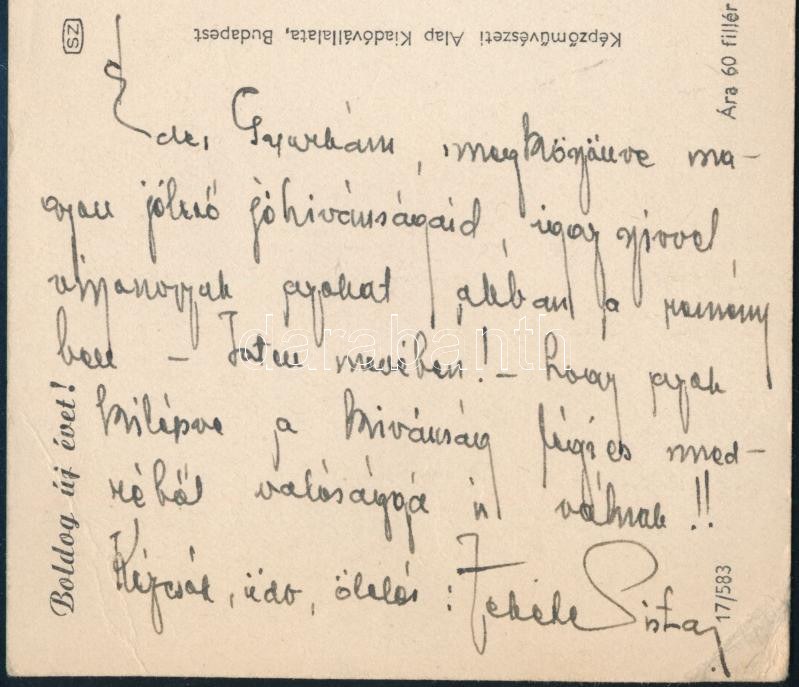 SZ
Képzőművészeti Alap Kiadóvállalata, Budapest
Ára 60 fillér
Édes Gyurkám, megköszönve na-
gyon jóleső jókivánságaid, igaz szivvel
viszonozzuk azokat abban a remény
ben – Isten nevében! – hogy azok
kilépve a kivánság légies med-
réből valósággá is válnak!!
Kézcsók, üdv, ölelés: Fekete Pista
Boldog új évet!
17/583
darabanth